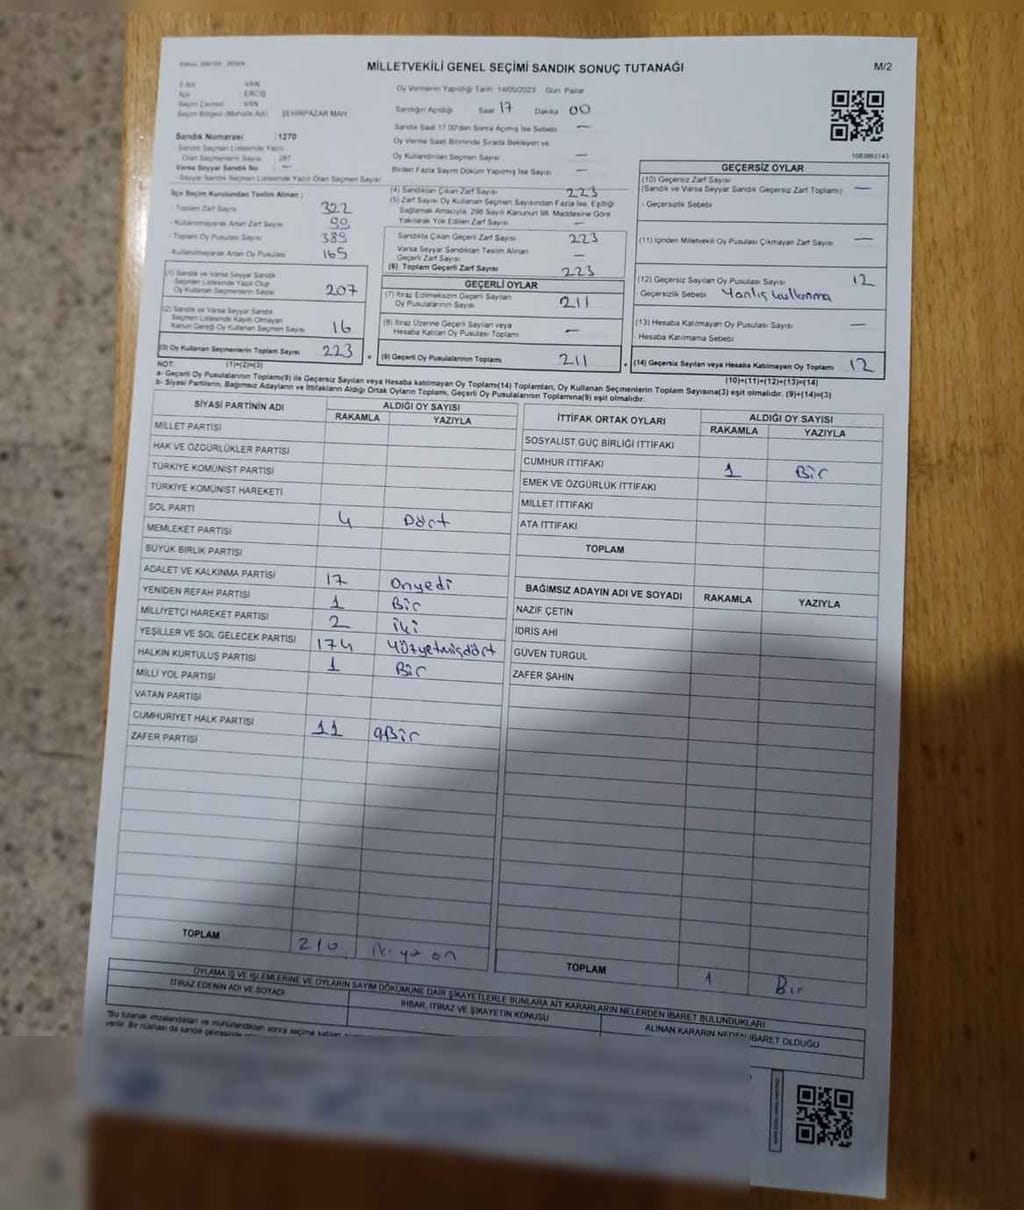 MİLLETVEKİLİ GENEL SEÇİMİ SANDIK SONUÇ TUTANAĞI
M/2
Oy Vermenin Yapıldığı Tarih 14/05/2023 Gün Pazar
İli VAN
İlçe ERCİŞ
Seçim Çevresi VAN
ŞEHİRPAZAR MAH
Sandığın Açıldığı Saat 17 Dakika 00
Sandık Saat 17.00'den Sonra Açılmış İse Sebebi —
Oy Verme Saat Bitiminde Sırada Bekleyen ve
Oy Kullandırılan Seçmen Sayısı —
Birden Fazla Sayım Döküm Yapılmış İse Sayısı —
Sandık Numarası : 1270
Sandık Seçmen Listesinde Yazılı
Olan Seçmenlerin Sayısı : 297
Varsa Seyyar Sandık No : —
İlçe Seçim Kurulundan Teslim Alınan ;
- Toplam Zarf Sayısı 322
- Kullanılmayarak Artan Zarf Sayısı 99
- Toplam Oy Pusulası Sayısı 389
- Kullanılmayarak Artan Oy Pusulası 165
(1) Sandık ve Varsa Seyyar Sandık
Seçmen Listesinde Yazılı Olup
Oy Kullanan Seçmenlerin Sayısı 207
(2) Sandık ve Varsa Seyyar Sandık
Seçmen Listesinde Kaydı Olmayan
Kanun Gereği Oy Kullanan Seçmen Sayısı 16
(3) Oy Kullanan Seçmenlerin Toplam Sayısı 223
(1)+(2)=(3)
(4) Sandıktan Çıkan Zarf Sayısı 223
(5) Zarf Sayısı Oy Kullanan Seçmen Sayısından Fazla İse, Eşitliği
Sağlamak Amacıyla, 298 Sayılı Kanunun 98. Maddesine Göre
Yakılarak Yok Edilen Zarf Sayısı —
Sandıkta Çıkan Geçerli Zarf Sayısı 223
Varsa Seyyar Sandıktan Teslim Alınan
Geçerli Zarf Sayısı —
(6) Toplam Geçerli Zarf Sayısı 223
GEÇERLİ OYLAR
(7) İtiraz Edilmeksizin Geçerli Sayılan
Oy Pusulalarının Sayısı 211
(8) İtiraz Üzerine Geçerli Sayılan veya
Hesaba Katılan Oy Pusulası Toplamı —
(9) Geçerli Oy Pusulalarının Toplamı 211
1083893143
GEÇERSİZ OYLAR
(10) Geçersiz Zarf Sayısı
(Sandık ve Varsa Seyyar Sandık Geçersiz Zarf Toplamı) —
- Geçersizlik Sebebi
(11) İçinden Milletvekili Oy Pusulası Çıkmayan Zarf Sayısı —
(12) Geçersiz Sayılan Oy Pusulası Sayısı 12
Geçersizlik Sebebi Yanlış kullanma
(13) Hesaba Katılmayan Oy Pusulası Sayısı —
- Hesaba Katılmama Sebebi
(14) Geçersiz Sayılan veya Hesaba Katılmayan Oy Toplamı 12
(10)+(11)+(12)+(13)=(14)
NOT:
a- Geçerli Oy Pusulalarının Toplamı(9) ile Geçersiz Sayılan veya Hesaba katılmayan Oy Toplamı(14) Toplamları, Oy Kullanan Seçmenlerin Toplam Sayısına(3) eşit olmalıdır. (9)+(14)=(3)
b- Siyasi Partilerin, Bağımsız Adayların ve İttifakların Aldığı Ortak Oyların Toplamı, Geçerli Oy Pusulalarının Toplamına(9) eşit olmalıdır.
SİYASİ PARTİNİN ADI ALDIĞI OY SAYISI
RAKAMLA YAZIYLA
MİLLET PARTİSİ
HAK VE ÖZGÜRLÜKLER PARTİSİ
TÜRKİYE KOMÜNİST PARTİSİ
TÜRKİYE KOMÜNİST HAREKETİ
SOL PARTİ 4 Dört
MEMLEKET PARTİSİ
BÜYÜK BİRLİK PARTİSİ
ADALET VE KALKINMA PARTİSİ 17 Onyedi
YENİDEN REFAH PARTİSİ 1 Bir
MİLLİYETÇİ HAREKET PARTİSİ 2 iki
YEŞİLLER VE SOL GELECEK PARTİSİ 174 Yüzyetmişdört
HALKIN KURTULUŞ PARTİSİ 1 Bir
MİLLİ YOL PARTİSİ
VATAN PARTİSİ
CUMHURİYET HALK PARTİSİ 11
ZAFER PARTİSİ
TOPLAM 210
İTTİFAK ORTAK OYLARI ALDIĞI OY SAYISI
RAKAMLA YAZIYLA
SOSYALİST GÜÇ BİRLİĞİ İTTİFAKI
CUMHUR İTTİFAKI 1 Bir
EMEK VE ÖZGÜRLÜK İTTİFAKI
MİLLET İTTİFAKI
ATA İTTİFAKI
TOPLAM
BAĞIMSIZ ADAYIN ADI VE SOYADI RAKAMLA YAZIYLA
NAZİF ÇETİN
İDRİS AHİ
GÜVEN TURGUL
ZAFER ŞAHİN
TOPLAM 1 Bir
OYLAMA İŞ VE İŞLEMLERİNE VE OYLARIN SAYIM DÖKÜMÜNE DAİR ŞİKAYETLERLE BUNLARA AİT KARARLARIN NELERDEN İBARET BULUNDUKLARI
İTİRAZ EDENİN ADI VE SOYADI İHBAR, İTİRAZ VE ŞİKAYETİN KONUSU ALINAN KARARIN NEDEN İBARET OLDUĞU
"Bu tutanak imzalandıktan ve mühürlendikten sonra seçime katılan